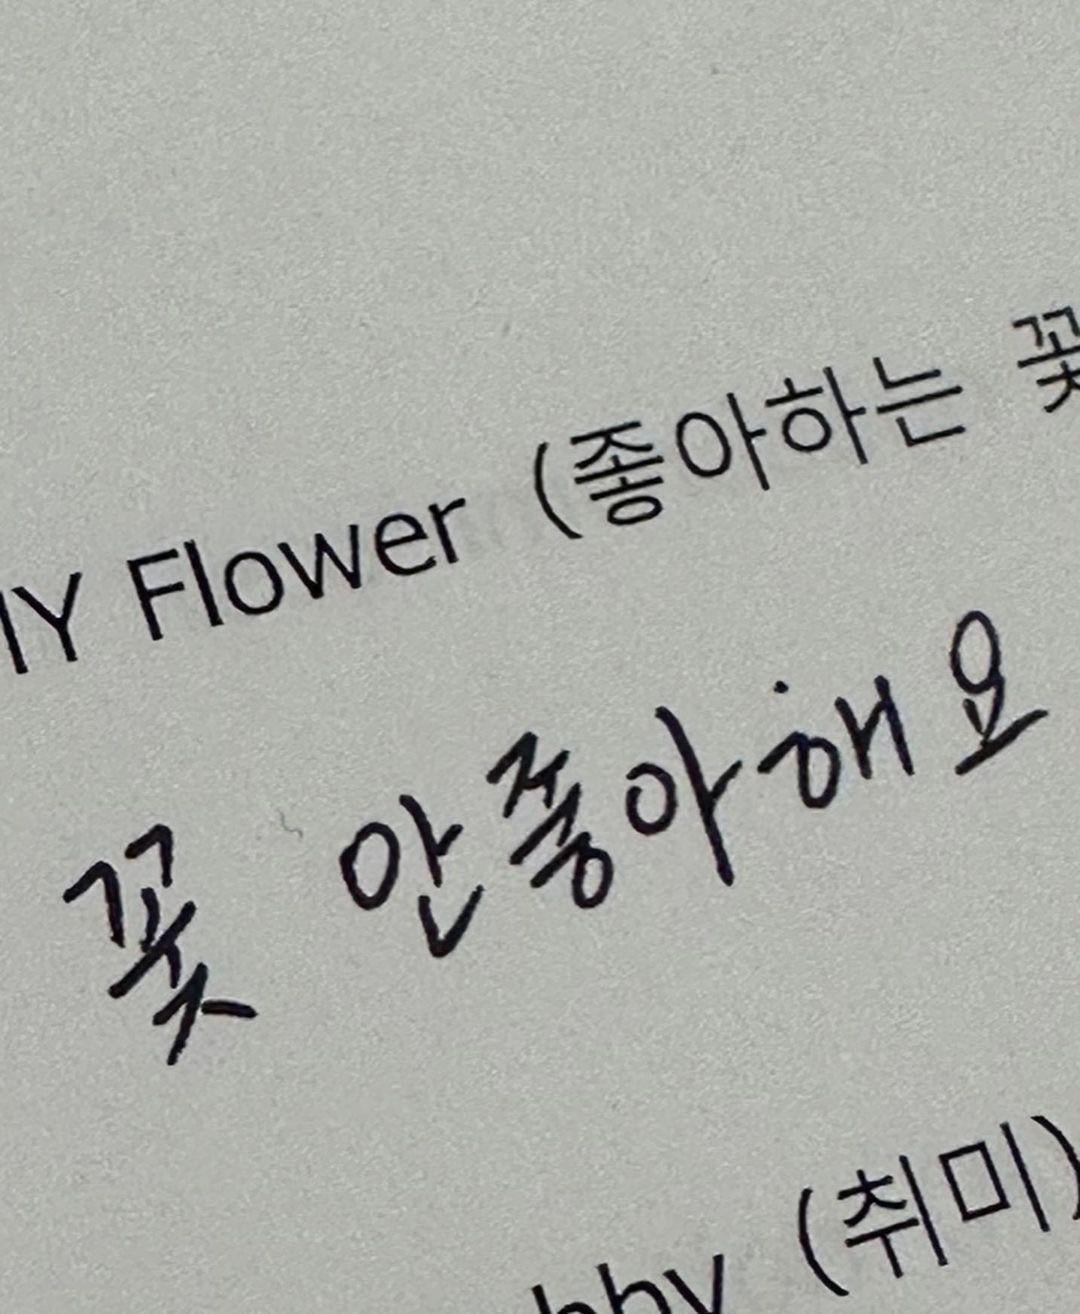 MY Flower (좋아하는 꽃
꽃 안좋아해요
bby (취미)